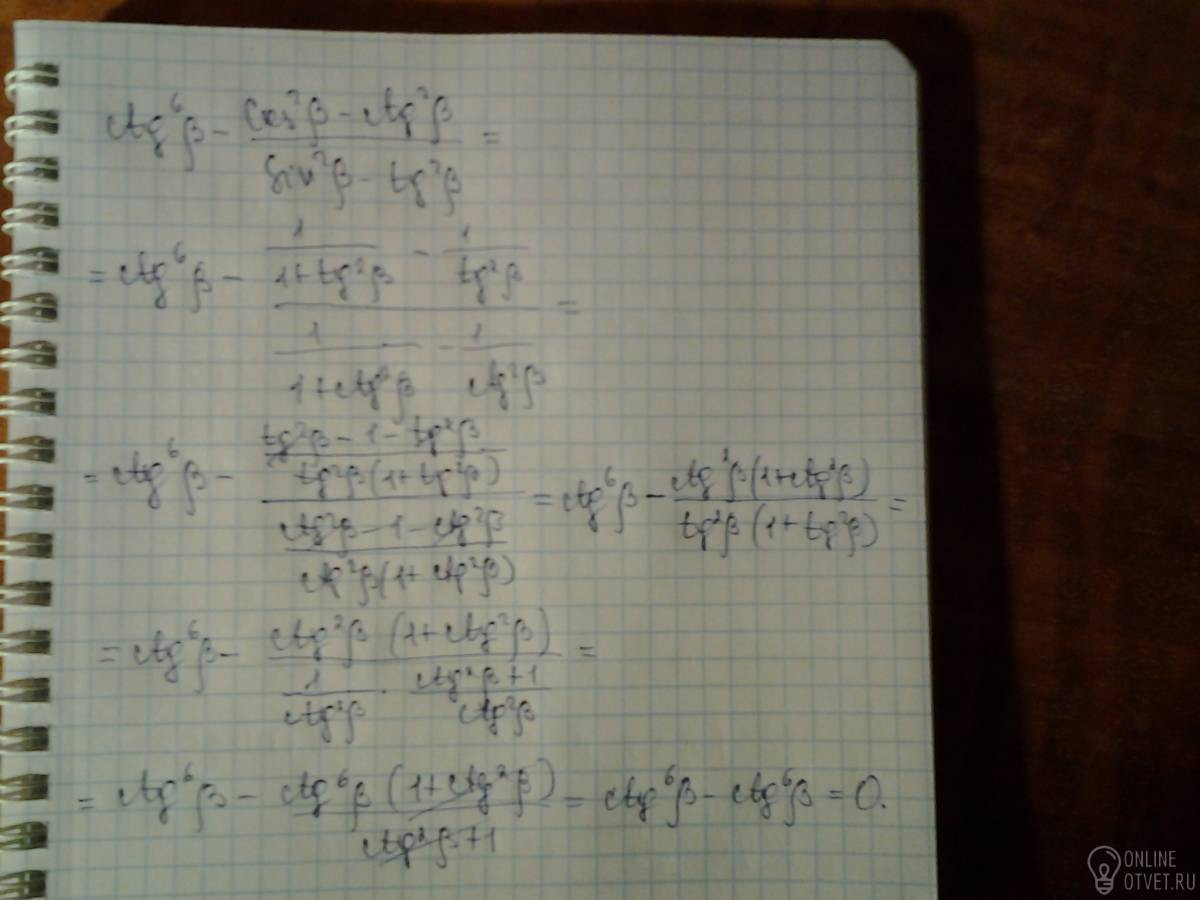 ctg⁶β - (cos²β - ctg²β)/(sin²β - tg²β) =
= ctg⁶β - (1/(1+tg²β) - 1/tg²β)/(1/(1+ctg²β) - 1/ctg²β) =
= ctg⁶β - ((tg²β - 1 - tg²β)/(tg²β(1+tg²β)))/((ctg²β - 1 - ctg²β)/(ctg²β(1+ctg²β))) = ctg⁶β - (ctg²β(1+ctg²β))/(tg²β(1+tg²β)) =
= ctg⁶β - (ctg²β (1+ctg²β))/(1/ctg²β · (ctg²β+1)/ctg²β) =
= ctg⁶β - (ctg⁶β (1+ctg²β))/(ctg²β+1) = ctg⁶β - ctg⁶β = 0.
ONLINE
OTVET.RU